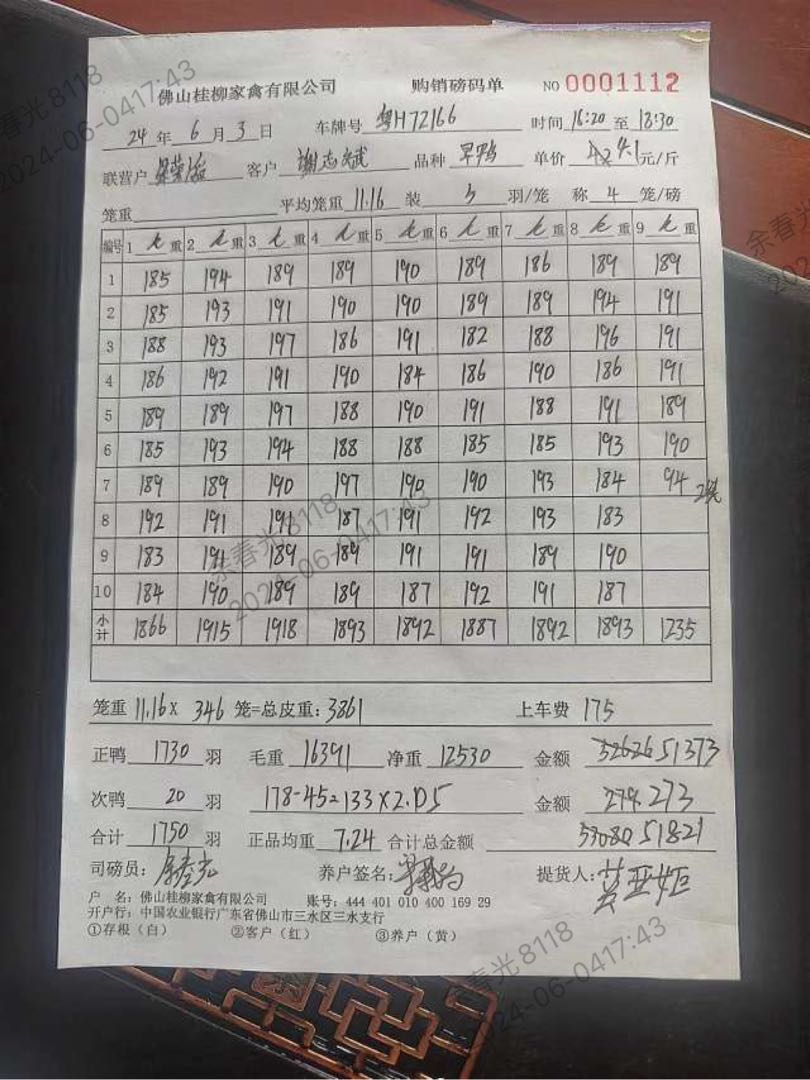 佛山桂柳家禽有限公司 购销磅码单 NO 0001112
24年 6月 3日 车牌号 粤H72166 时间 16:20 至 18:30
联营户 客户 谢志斌 品种 旱鸭 单价 4.1元/斤
笼重 平均笼重 11.16 装 5 羽/笼 称 4 笼/磅
编号 1 毛重 2 毛重 3 毛重 4 毛重 5 毛重 6 毛重 7 毛重 8 毛重 9 毛重
1 185 194 189 189 190 189 186 189 189
2 185 193 191 190 190 189 189 194 191
3 188 193 197 186 191 182 188 196 191
4 186 192 191 190 184 186 190 186 191
5 189 189 197 188 190 191 188 191 189
6 185 193 194 188 188 185 185 193 190
7 189 189 190 197 190 190 193 184 94 2笼
8 192 191 191 187 191 192 193 183
9 183 191 189 189 191 191 189 190
10 184 190 189 189 187 192 191 187
小计 1866 1915 1918 1893 1892 1887 1892 1893 1235
笼重 11.16 X 346 笼=总皮重: 3861 上车费 175
正鸭 1730 羽 毛重 16391 净重 12530 金额 51373
次鸭 20 羽 178-45=133X2.05 金额 273
合计 1750 羽 正品均重 7.24 合计总金额 51821
司磅员: 余春光 养户签名: 提货人:
户 名: 佛山桂柳家禽有限公司 账号: 444 401 010 400 169 29
开户行: 中国农业银行广东省佛山市三水区三水支行
①存根(白) ②客户(红) ③养户(黄)
余春光 8118
2024-06-0417:43
余春光 8118
2024-06-0417:43
余春光 8118
2024-06-0417:43